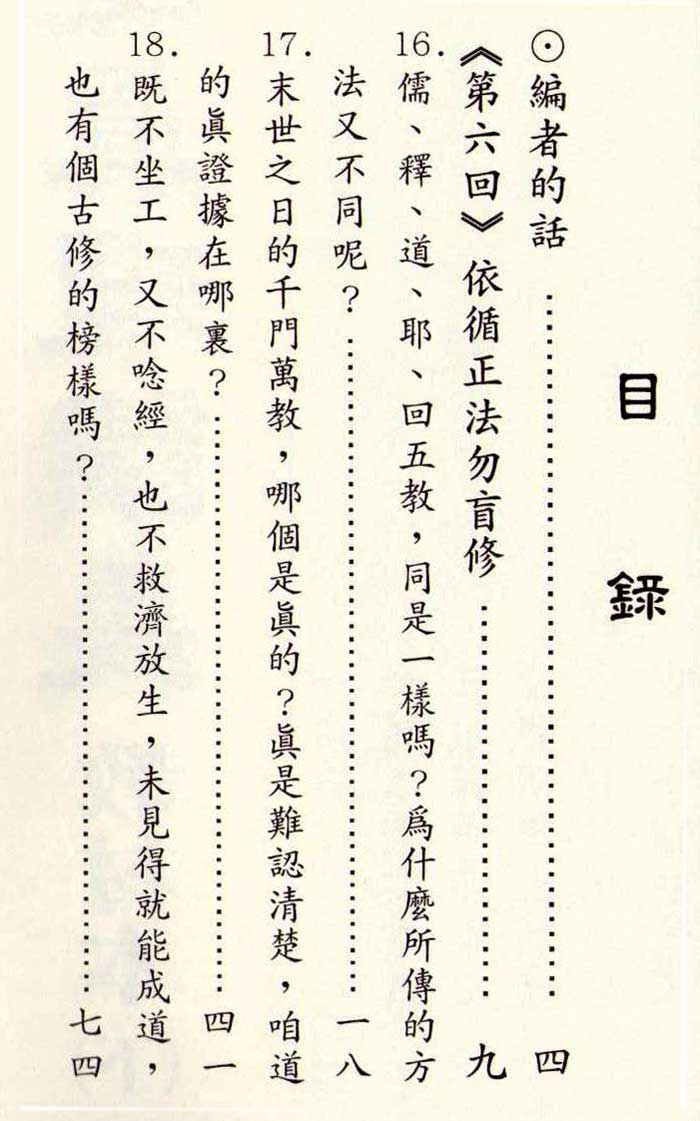 目錄
⊙編者的話……………………………………四
《第六回》依循正法勿盲修……………………九
16.儒、釋、道、耶、回五教,同是一樣嗎?爲什麼所傳的方
法又不同呢?……………………………………一八
17.末世之日的千門萬教,哪個是眞的?眞是難認清楚,咱道
的眞證據在哪裏?………………………………四一
18.既不坐工,又不唸經,也不救濟放生,未見得就能成道,
也有個古修的榜樣嗎?…………………………七四